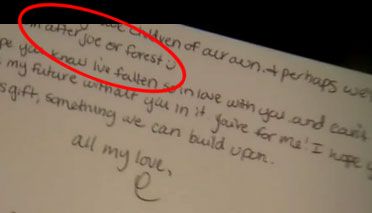 children of our own. & perhaps we'll
after joe or forest
you know i've fallen so in love with you and can't
my future without you in it you're for me! I hope y
gift, something we can build upon.
all my love,
e